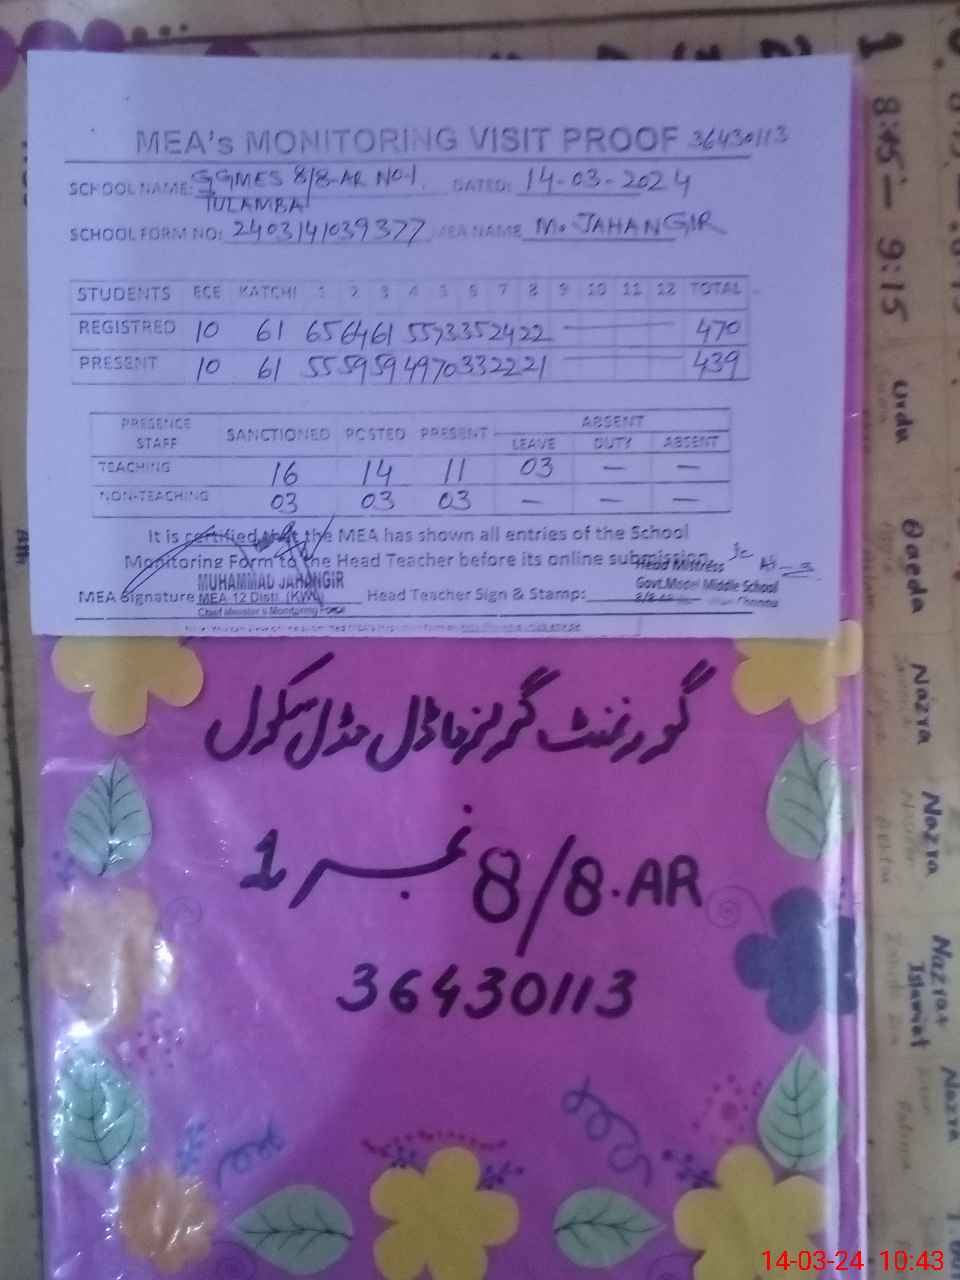 MEA's MONITORING VISIT PROOF 36430113
SCHOOL NAME: GGMES 8/8-AR NO.1, DATED: 14-03-2024
TULAMBA
SCHOOL FORM NO: 2403141039377 MEA NAME M. JAHANGIR
STUDENTS ECE KATCHI 1 2 3 4 5 6 7 8 9 10 11 12 TOTAL
REGISTRED 10 61 65 64 61 55 73 35 24 22 470
PRESENT 10 61 55 59 59 49 70 33 22 21 439
PRESENCE STAFF SANCTIONED POSTED PRESENT ABSENT
LEAVE DUTY ABSENT
TEACHING 16 14 11 03 — —
NON-TEACHING 03 03 03 — — —
It is certified that the MEA has shown all entries of the School
Monitoring Form to the Head Teacher before its online submission.
MEA Signature Head Teacher Sign & Stamp:
MUHAMMAD JAHANGIR
MEA-12 Distt. (KWL)
Chief Minister's Monitoring Force
Head Mistress
Govt. Model Middle School
گورنمنٹ گرلز ماڈل مڈل سکول
8/8.AR نمبر 1
36430113
1 8:45 — 9:15 Urdu Qaeda Nazra Nazra Nazrat Islamiat Nazra
2
14-03-24 10:43